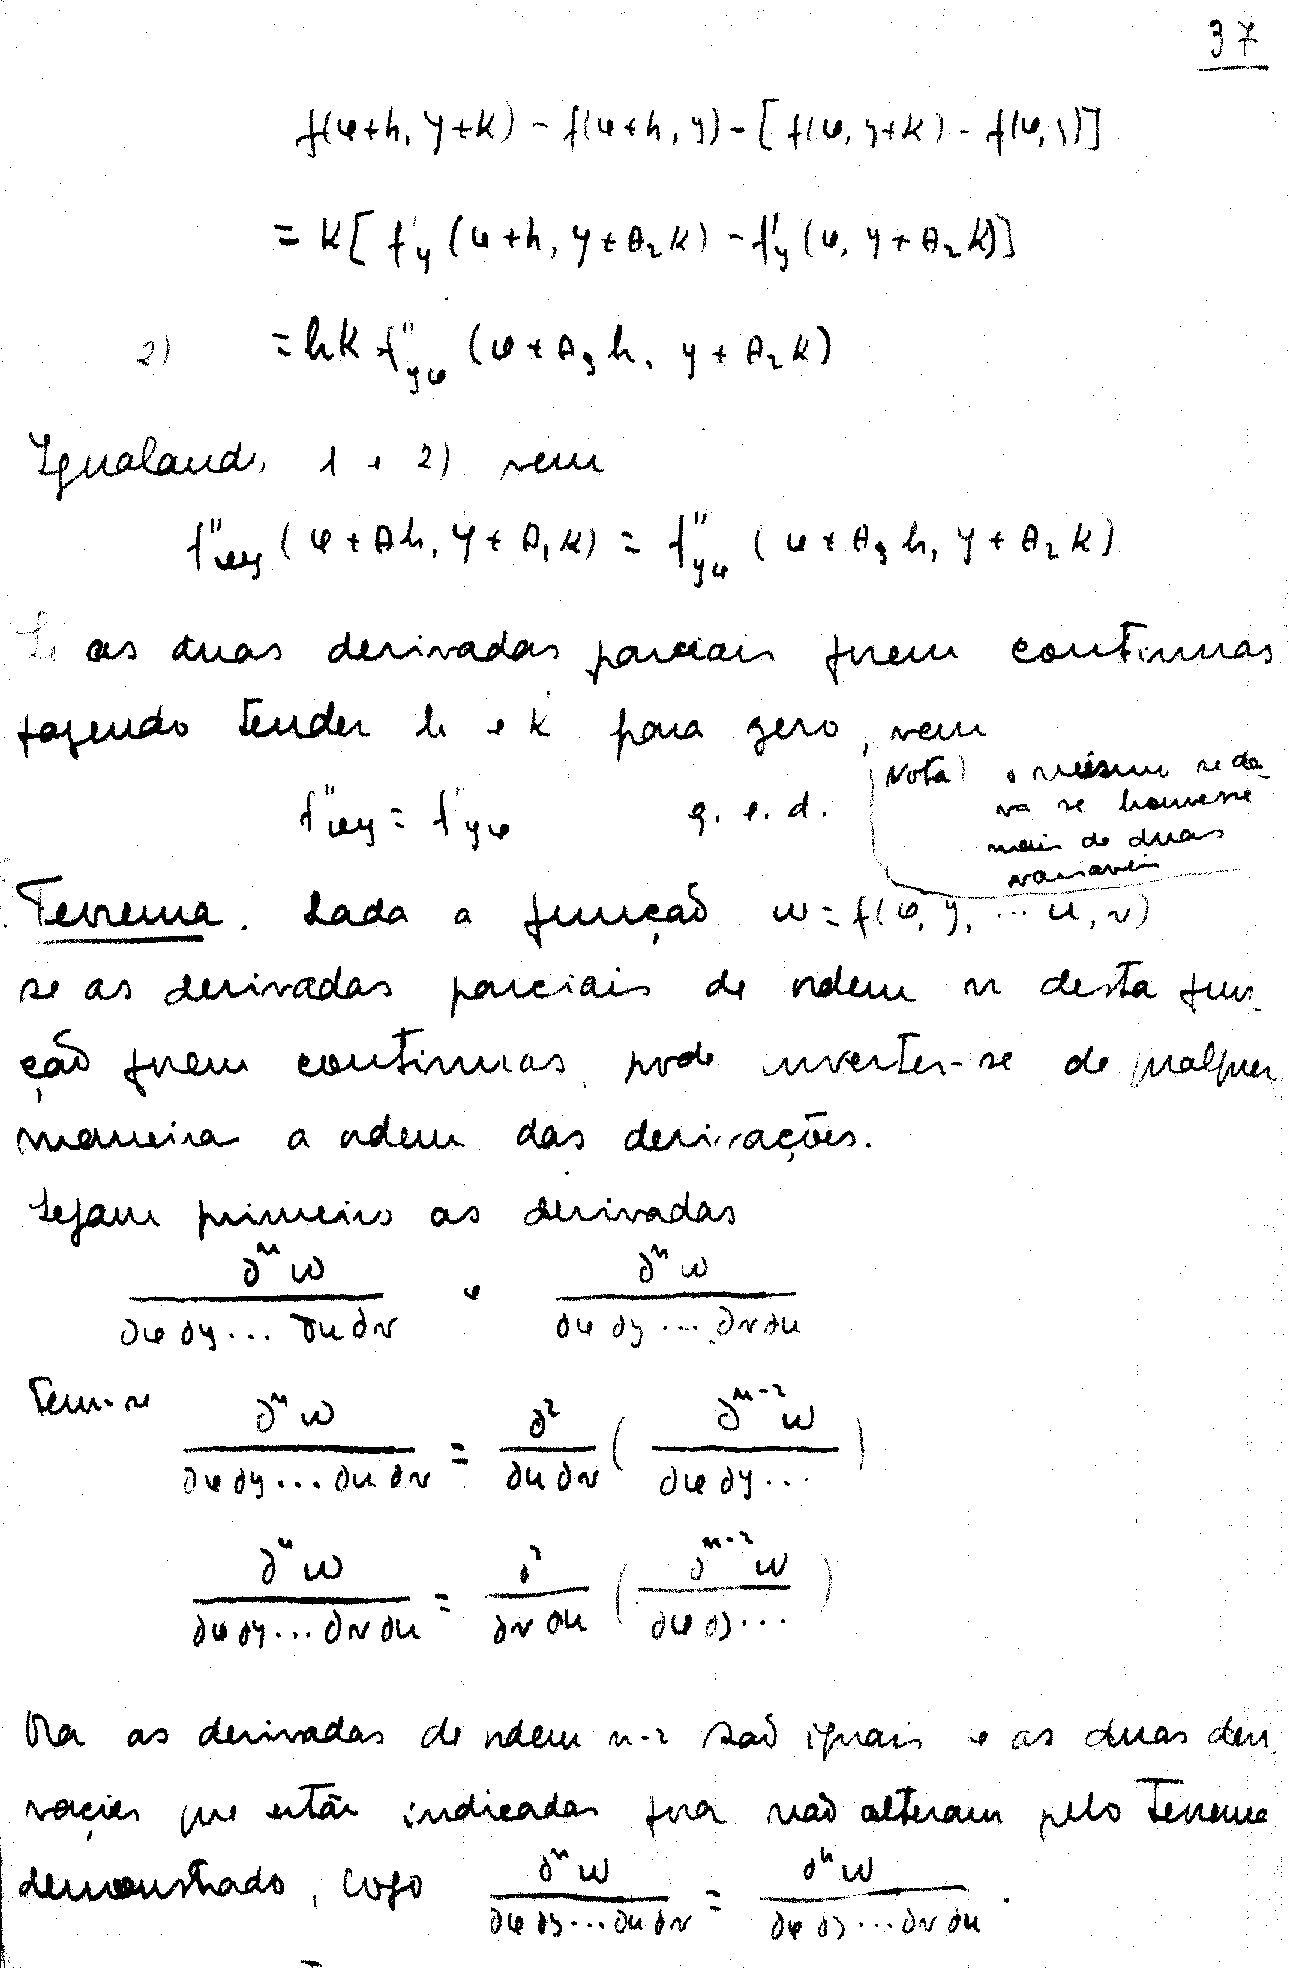 37
f(x+h, y+k) - f(x+h, y) - [f(x, y+k) - f(x, y)]
= k[f'y (x+h, y+θ₂k) - f'y (x, y+θ₂k)]
2) = hk f''yx (x+θ₃h, y+θ₂k)
Igualando 1 e 2) vem
f''xy (x+θh, y+θ₁k) = f''yx (x+θ₃h, y+θ₂k)
Se as duas derivadas parciais forem continuas
fazendo tender h e k para zero, vem
f''xy = f''yx q. e. d.
(Nota) o mesmo se da-
va se houvesse
mais de duas
variaveis
Teorema. Dada a função w = f(x, y, ... u, v)
se as derivadas parciais de ordem n desta fun-
ção forem continuas, pode inverter-se de qualquer
maneira a ordem das derivações.
Sejam primeiro as derivadas
∂ⁿw / ∂x ∂y ... ∂u ∂v e ∂ⁿw / ∂x ∂y ... ∂v ∂u
Tem-se ∂ⁿw / ∂x ∂y ... ∂u ∂v = ∂² / ∂u ∂v ( ∂ⁿ⁻²w / ∂x ∂y ... )
∂ⁿw / ∂x ∂y ... ∂v ∂u = ∂² / ∂v ∂u ( ∂ⁿ⁻²w / ∂x ∂y ... )
Ora as derivadas de ordem n-2 são iguais e as duas deri
vações que estão indicadas fora não alteram pelo Teorema
demonstrado, logo ∂ⁿw / ∂x ∂y ... ∂u ∂v = ∂ⁿw / ∂x ∂y ... ∂v ∂u .